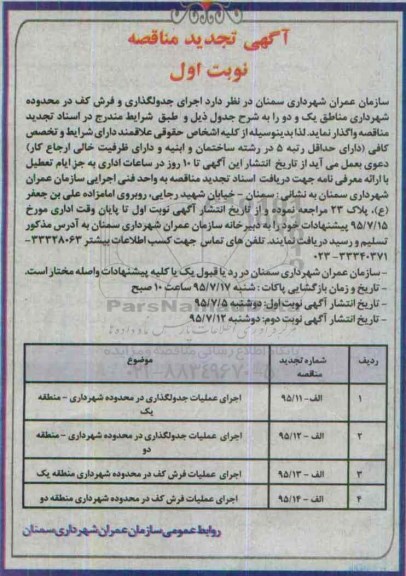 آگهی تجدید مناقصه
نوبت اول
سازمان عمران شهرداری سمنان در نظر دارد اجرای جدولگذاری و فرش کف در محدوده
شهرداری مناطق یک و دو را به شرح جدول ذیل و طبق شرایط مندرج در اسناد تجدید
مناقصه واگذار نماید. لذا بدینوسیله از کلیه اشخاص حقوقی علاقمند دارای شرایط و تخصص
کافی (دارای حداقل رتبه ۵ در رشته ساختمان و ابنیه و دارای ظرفیت خالی ارجاع کار)
دعوی بعمل می آید از تاریخ انتشار این آگهی تا ۱۰ روز در ساعات اداری به جز ایام تعطیل
با ارائه معرفی نامه جهت دریافت اسناد تجدید مناقصه به واحد فنی اجرایی سازمان عمران
شهرداری سمنان به نشانی - سمنان - خیابان شهید رجایی، روبروی امامزاده علی بن جعفر
(ع)، پلاک ۲۳ مراجعه نموده و از تاریخ انتشار آگهی نوبت اول تا پایان وقت اداری مورخ
۹۵/۷/۱۵ پیشنهادات خود را به دبیرخانه سازمان عمران شهرداری سمنان به آدرس مذکور
تسلیم و رسید دریافت نمایند. تلفن های تماس جهت کسب اطلاعات بیشتر ۳۳۳۲۸۰۶۳-
۳۳۳۴۰۳۷۱- ۰۲۳
- سازمان عمران شهرداری سمنان در رد یا قبول یک یا کلیه پیشنهادات واصله مختار است.
- تاریخ و زمان بازگشایی پاکات : شنبه ۹۵/۷/۱۷ ساعت ۱۰ صبح
- تاریخ انتشار آگهی نوبت اول: دوشنبه ۹۵/۷/۵
- تاریخ انتشار آگهی نوبت دوم: دوشنبه ۹۵/۷/۱۲
ردیف شماره تجدید مناقصه موضوع
۱ الف- ۹۵/۱۱ اجرای عملیات جدولگذاری در محدوده شهرداری - منطقه یک
۲ الف - ۹۵/۱۲ اجرای عملیات جدولگذاری در محدوده شهرداری - منطقه دو
۳ الف - ۹۵/۱۳ اجرای عملیات فرش کف در محدوده شهرداری منطقه یک
۴ الف - ۹۵/۱۴ اجرای عملیات فرش کف در محدوده شهرداری منطقه دو
روابط عمومی سازمان عمران شهرداری سمنان